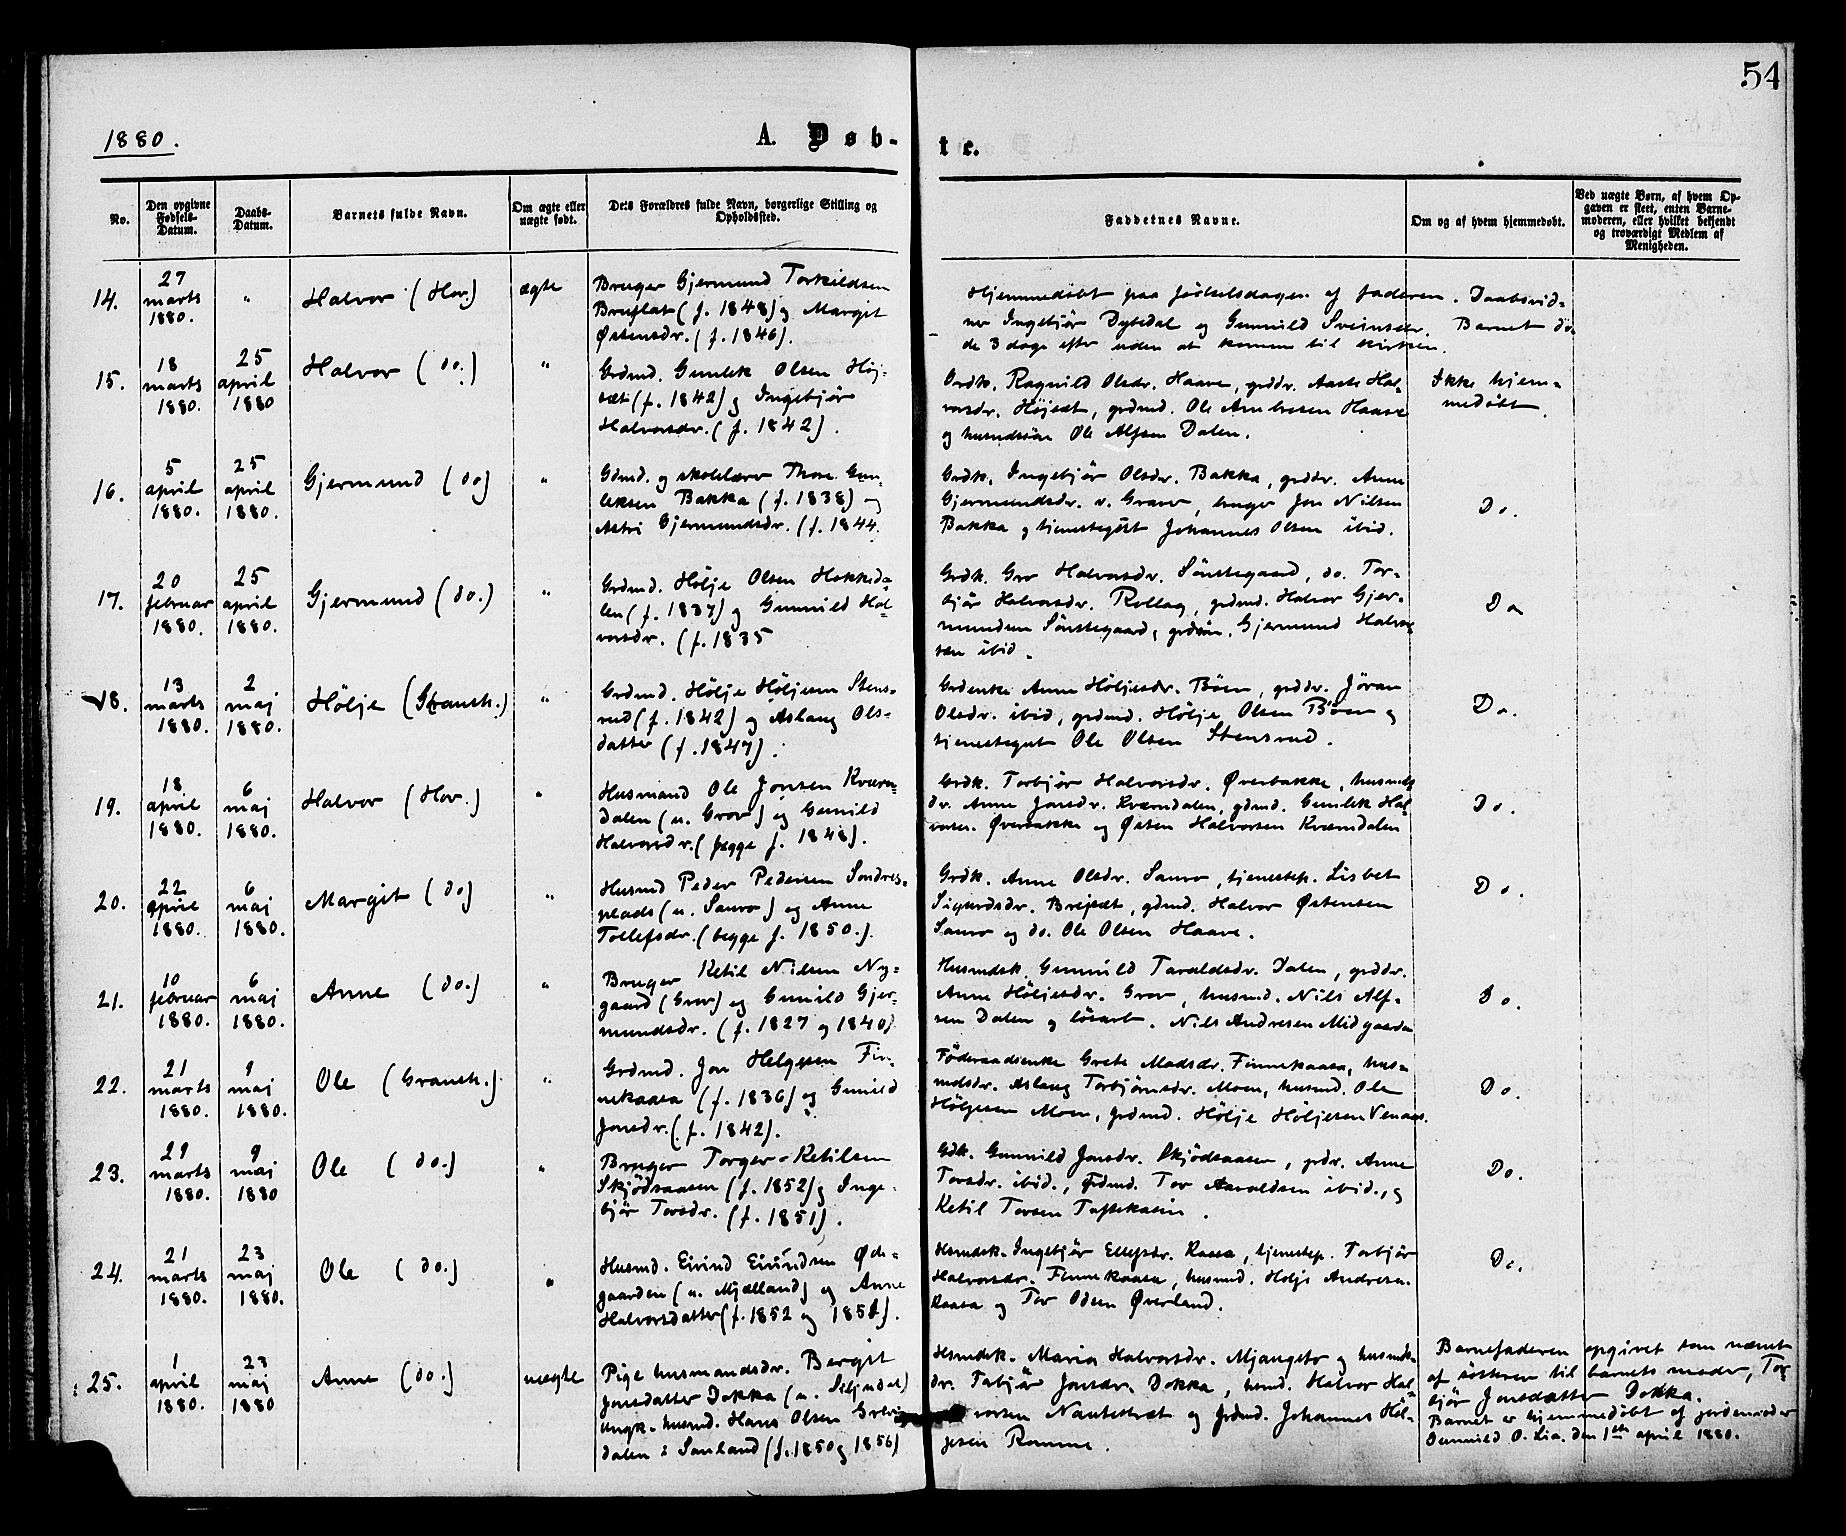 54
1880.
A. Døb-
te.
No.
Den opgivne
Fødsels-
Datum.
Daabs-
Datum.
Barnets fulde Navn.
Om ægte eller
uægte født.
Dets Forældres fulde Navn, borgerlige Stilling og
Opholdssted.
Faddernes Navne.
Om og af hvem hjemmedøbt.
Ved uægte Børn, af hvem Op-
gaven er skeet, enten Barne-
moderen, eller hvilket bekjendt
og troværdigt Medlem af
Menigheden.
14.
27
marts
1880.
"
Halvor (Hov.)
ægte
Bruger Gjermund Torkildsen
Bruflat (f. 1848) og Margit
Østensdr. (f. 1846).
Hjemmedøbt paa fødselsdagen af faderen. Daabsvid-
ner Ingebjør Dybdal og Gunnild Sveinsdr. Barnet dø-
de 3 dage efter uden at komme til kirken.
15.
18
marts
1880.
25
april
1880
Halvor (do.)
"
Grdmd. Gunlek Olsen Høj-
sæt (f. 1842) og Ingebjør
Halvorsdr. (f. 1842).
Grdk. Ragnild Olsdr. Haave, grddr. Aaste Hal-
vorsdr. Højsæt, grdmd. Ole Ambresen Haave
og husmdssøn Ole Alfsen Dalen.
Ikke hjem-
medøbt.
16.
5
april
1880.
25
april
1880.
Gjermund (do)
"
Gdmd. og skolelærer Thore Gun-
leksen Bakka (f. 1838) og
Astri Gjermundsdr. (f. 1844.
Grdk. Ingebjør Olsdr. Bakka, grddr. Anne
Gjermundsdr. v. Graver, bruger Jon Nilsen
Bakka og tjenestegut Johannes Olsen ibid.
Do.
17.
20
februar
1880.
25
april
1880.
Gjermund (do.)
"
Grdmd. Hølje Olsen Hokkeda-
len (f. 1837) og Gunnild Hal-
vorsdr. (f. 1835
Grdk. Gro Halvorsdr. Sønstegaard, do. Tor-
bjør Halvorsdr. Rollag, grdmd. Halvor Gjer-
mundsen Sønstegaard, grdsøn. Gjermund Halvor-
sen ibid.
Do
18.
13
marts
1880.
2
maj
1880.
Hølje (Gransh.)
"
Grdmd. Hølje Høljesen Stens-
rud (f. 1842) og Aslaug Ols-
datter (f. 1847).
Grdenke Anne Høljesdr. Bøen, grddr. Jøran
Olsdr. ibid, grdmd. Hølje Olsen Bøen og
tjenestegut Ole Olsen Stensrud.
Do.
19.
18
april
1880.
6
maj
1880.
Halvor (Hov.)
"
Husmand Ole Jonsen Kværn-
dalen (u. Grov) og Gunild
Halvorsdr. (begge f. 1848).
Grdk. Torbjør Halvorsdr. Øverbakke, husmds
dr. Anne Jonsdr. Kværndalen, gdmd. Gunlek Hal-
vorsen. Øverbakke og Østen Halvorsen Kværndalen
Do.
20.
22
april
1880.
6
maj
1880.
Margit (do)
"
Husmd Peder Pedersen Sondres-
plads (u. Sauro) og Anne
Tollefsdr. (begge f. 1850.).
Grdk. Anne Olsdr. Sauro, tjenestep. Lisbet
Sigurdsdr. Brejsæt, gdmd. Halvor Østensen
Sauro og do. Ole Olsen Haave.
Do.
21.
10
februar
1880.
6
maj
1880.
Anne (do.)
"
Bruger Ketil Nilsen Ny-
gaard (Grov) og Gunild Gjer-
mundsdr. (f. 1827 og 1840).
Husmdsk. Gunnild Taraldsdr. Dalen, grddr.
Anne Høljesdr. Grov, husmd. Nils Alf-
sen Dalen og løsarb. Nils Andresen Midgarden
Do.
22.
21
marts
1880.
9
maj
1880.
Ole (Gransh.)
"
Grdmd. Jon Helgesen Fin-
nekaasa (f. 1836) og Gunild
Jonsdr. (f. 1842).
Føderaadsenke Grete Madsdr. Finnekaasa, hus-
mdsdr. Aslaug Torbjørnsdr. Moen, husmd. Ole
Høljesen Moen, grdmd. Hølje Høljesen Venaas.
Do.
23.
29
marts
1880.
9
maj
1880
Ole (do.)
"
Bruger Torger Ketilsen
Skjødsaasen (f. 1852) og Inge-
bjør Torsdr. (f. 1851).
Gdk. Gunnild Jonsdr. Skjødsaasen, grdr. Anne
Torsdr. ibid., Grdmd. Tor Aaraldsen ibid., og
Ketil Torsen Toftekasin.
Do.
24.
21
marts
1880.
23
maj
1880.
Ole (do.)
"
Husmd. Eivind Eivindsen Øde-
gaarden (u. Mjælland) og Anne
Halvorsdatter (f. 1852 og 1854).
Husmdsk. Ingebjør Ellefsdr. Kaasa, tjenestep. Torbjør
Halvorsdr. Finnekaasa, husmd. Holje Andresen
Kaasa og Tor Odsen Øverland.
Do.
25.
1
april
1880.
23
maj
1880
Anne (do.)
uægte
Pige husmandsdr. Bergit
Jonsdatter Dokka (u. Seljudal)
ungk. husmd. Hans Olsen
dalen i Sauland (f. 1850 og 1856)
Husmdsk. Maria Halvorsdr. Mjaugsto og husmds-
dr. Torbjør Jonsdr. Dokka, husmd. Halvor Hal-
vorsen Nautestræt og grdmd. Johannes Høl-
jesen Romme.
Barnefaderen opgivet som nævnt
af søsteren til barnets moder, Tor-
bjør Jonsdatter Dokka.
Barnet er hjemmedøbt af jordemoder
Gunnild O. Lia. den 1ste april 1880.